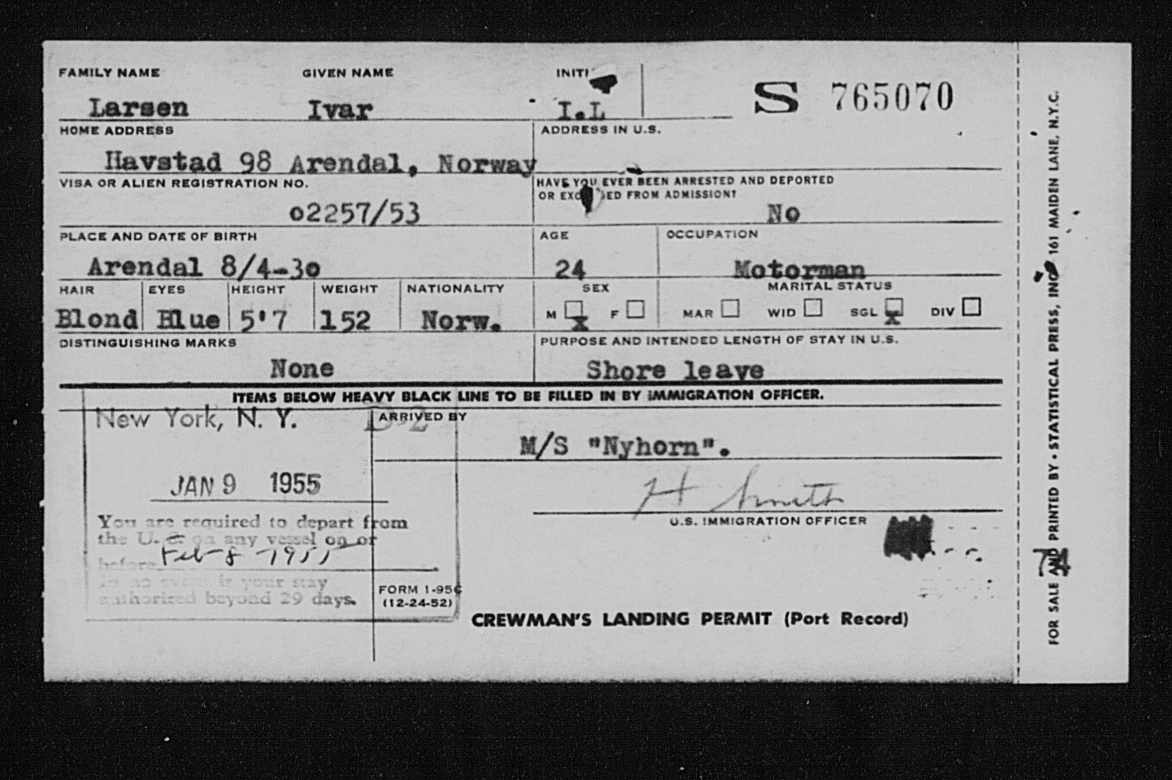 FAMILY NAME GIVEN NAME INITI
Larsen Ivar I.L
S 765070
HOME ADDRESS ADDRESS IN U.S.
Havstad 98 Arendal, Norway
VISA OR ALIEN REGISTRATION NO. HAVE YOU EVER BEEN ARRESTED AND DEPORTED
OR FROM ADMISSION?
02257/53 No
PLACE AND DATE OF BIRTH AGE OCCUPATION
Arendal 8/4-30 24 Motorman
HAIR EYES HEIGHT WEIGHT NATIONALITY SEX MARITAL STATUS
Blond Blue 5'7 152 Norw. M X F MAR WID SGL X DIV
DISTINGUISHING MARKS PURPOSE AND INTENDED LENGTH OF STAY IN U.S.
None Shore leave
ITEMS BELOW HEAVY BLACK LINE TO BE FILLED IN BY IMMIGRATION OFFICER.
New York, N. Y. ARRIVED BY
M/S "Nyhorn".
JAN 9 1955
H Smith
U.S. IMMIGRATION OFFICER
You are required to depart from
the U. S. on any vessel on or
before Feb 8 1955
In no event is your stay
authorized beyond 29 days.
FORM I-95C
(12-24-52)
CREWMAN'S LANDING PERMIT (Port Record)
FOR SALE AND PRINTED BY - STATISTICAL PRESS, INC. 161 MAIDEN LANE, N.Y.C.
74